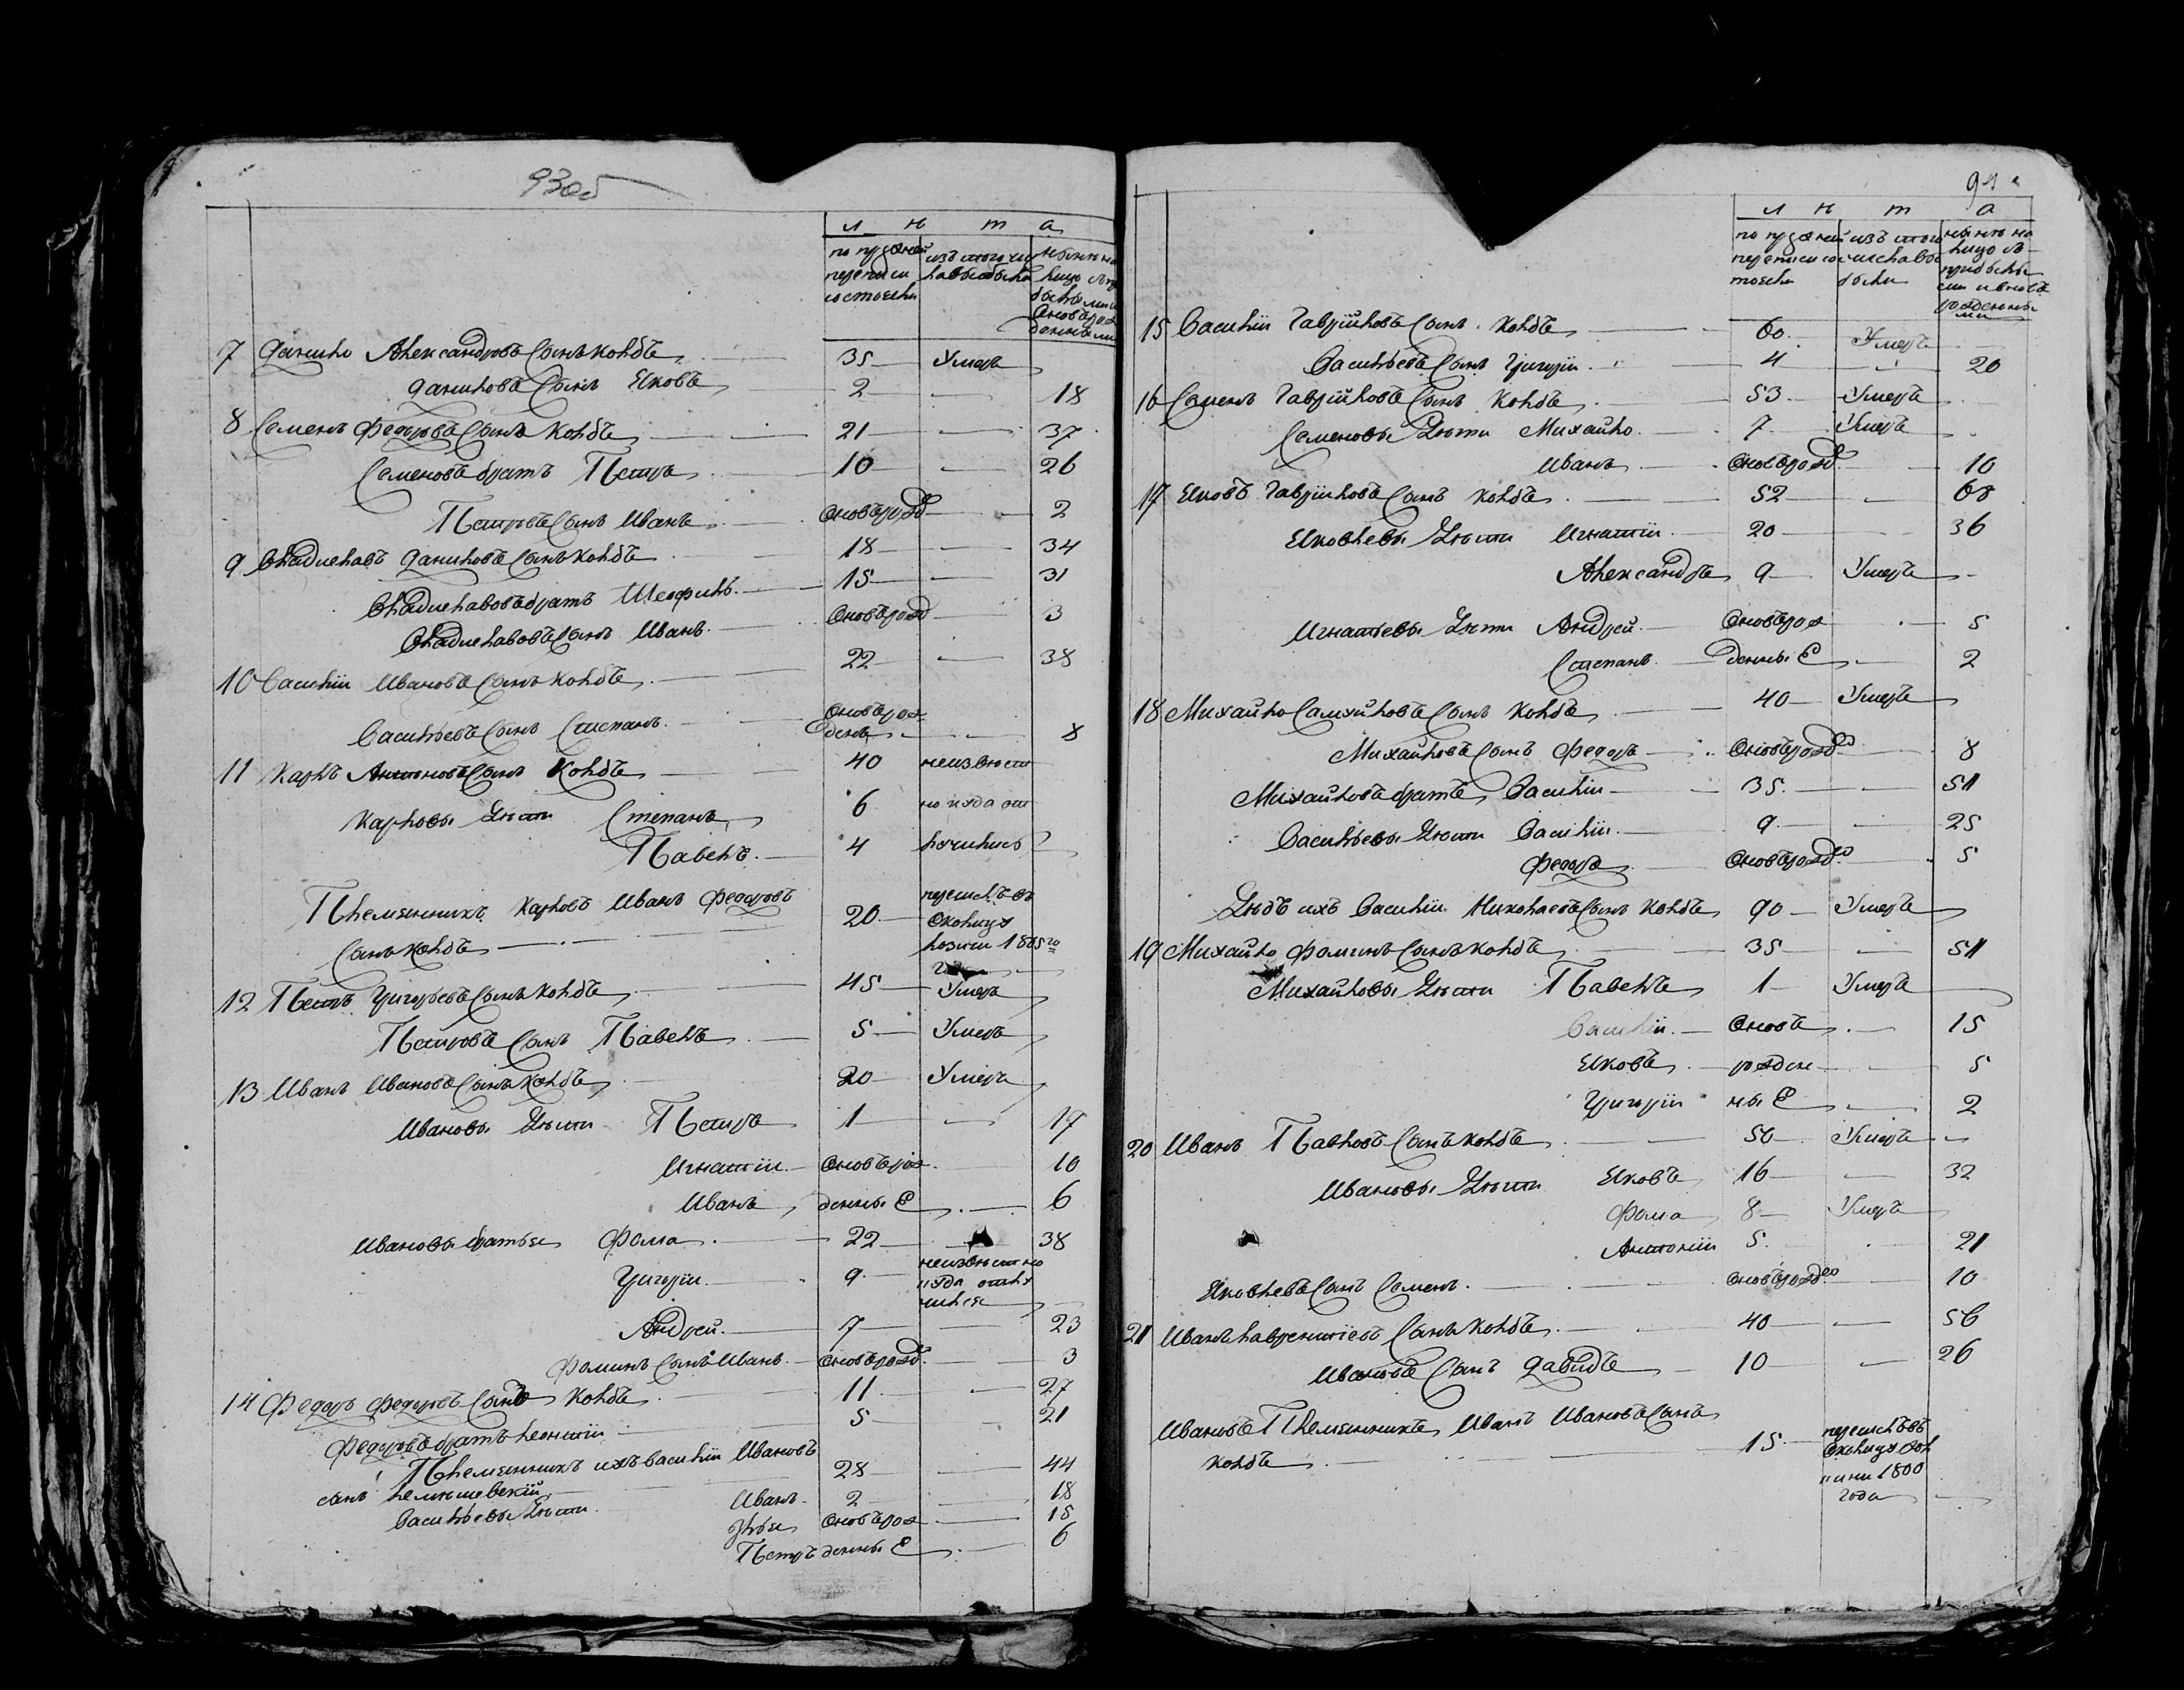 93об
лѣта
по прежней переписи состояли
изъ того числа выбыло
нынѣ на лицо съ прибылыми и вновь рожденными
7 Данило Александровъ сынъ Колбъ 35 умеръ
Даниловъ сынъ Яковъ 2 18
8 Семенъ Федоровъ сынъ Колбъ 21 37
Семеновъ братъ Петръ 10 26
Петровъ сынъ Иванъ вновь рожд 2
9 Владиславъ Даниловъ сынъ Колбъ 18 34
Владиславовъ братъ Теофилъ 15 31
Владиславовъ сынъ Иванъ вновь рожд 3
10 Василій Ивановъ сынъ Колбъ 22 38
Васильевъ сынъ Степанъ вновь рожденъ 8
11 Карлъ Антоновъ сынъ Колбъ 40 неизвѣст
Карловы дѣти Степанъ 6 но куда от
Павелъ 4 лучились
Племянникъ Карловъ Иванъ Федоровъ
сынъ Колбъ 20
12 Петръ Григорьевъ сынъ Колбъ 45 умеръ
Петровъ сынъ Павелъ 5 умеръ
13 Иванъ Ивановъ сынъ Колбъ 20 умеръ
Ивановы дѣти Петръ 1 17
Игнатій вновь рож 10
Иванъ денные 6
Ивановы братья Фома 22 38
Григорій 9 неизвѣстно куда отлучился
Андрей 7 23
Фоминъ сынъ Иванъ вновь рожд 3
14 Федоръ Федоровъ сынъ Колбъ 11 27
Федоровъ братъ Леонтій 5 21
Племянникъ ихъ Василій Ивановъ
сынъ 28 44
Васильевы дѣти Иванъ 2 18
Илья вновь рож 15
Петръ денные 6
94
лѣта
по прежней переписи состояли
изъ того числа выбыли
нынѣ на лицо съ прибылыми и вновь рожденными
15 Василій Гаврійловъ сынъ Колбъ 60 умеръ
Васильевъ сынъ Григорій 4 20
16 Семенъ Гаврійловъ сынъ Колбъ 53 умеръ
Семеновы дѣти Михайло 7 умеръ
Иванъ вновь рожд 10
17 Яковъ Гавриловъ сынъ Колбъ 52 68
Яковлевы дѣти Игнатій 20 36
Александръ 9 умеръ
Игнатьевы дѣти Андрей вновь рож 5
Степанъ денные 2
18 Михайло Самойловъ сынъ Колбъ 40 умеръ
Михайловъ сынъ Федоръ вновь рожд 8
Михайловъ братъ Василій 35 51
Васильевы дѣти Василій 9 25
Федоръ вновь рожд 5
Дѣдъ ихъ Василій Николаевъ сынъ Колбъ 90 умеръ
19 Михайло Фоминъ сынъ Колбъ 35 51
Михайловы дѣти Павелъ 1 умеръ
Василій вновь 15
Яковъ рожден 5
Григорій ные 2
20 Иванъ Павловъ сынъ Колбъ 50 умеръ
Ивановы дѣти Яковъ 16 32
Фома 8 умеръ
Антоній 5 21
Яковлевъ сынъ Семенъ вновь рожд 10
21 Иванъ Лаврентіевъ сынъ Колбъ 40 56
Ивановъ сынъ Давидъ 10 26
Ивановъ Племянникъ Иванъ Ивановъ сынъ
Колбъ 15
1800
года